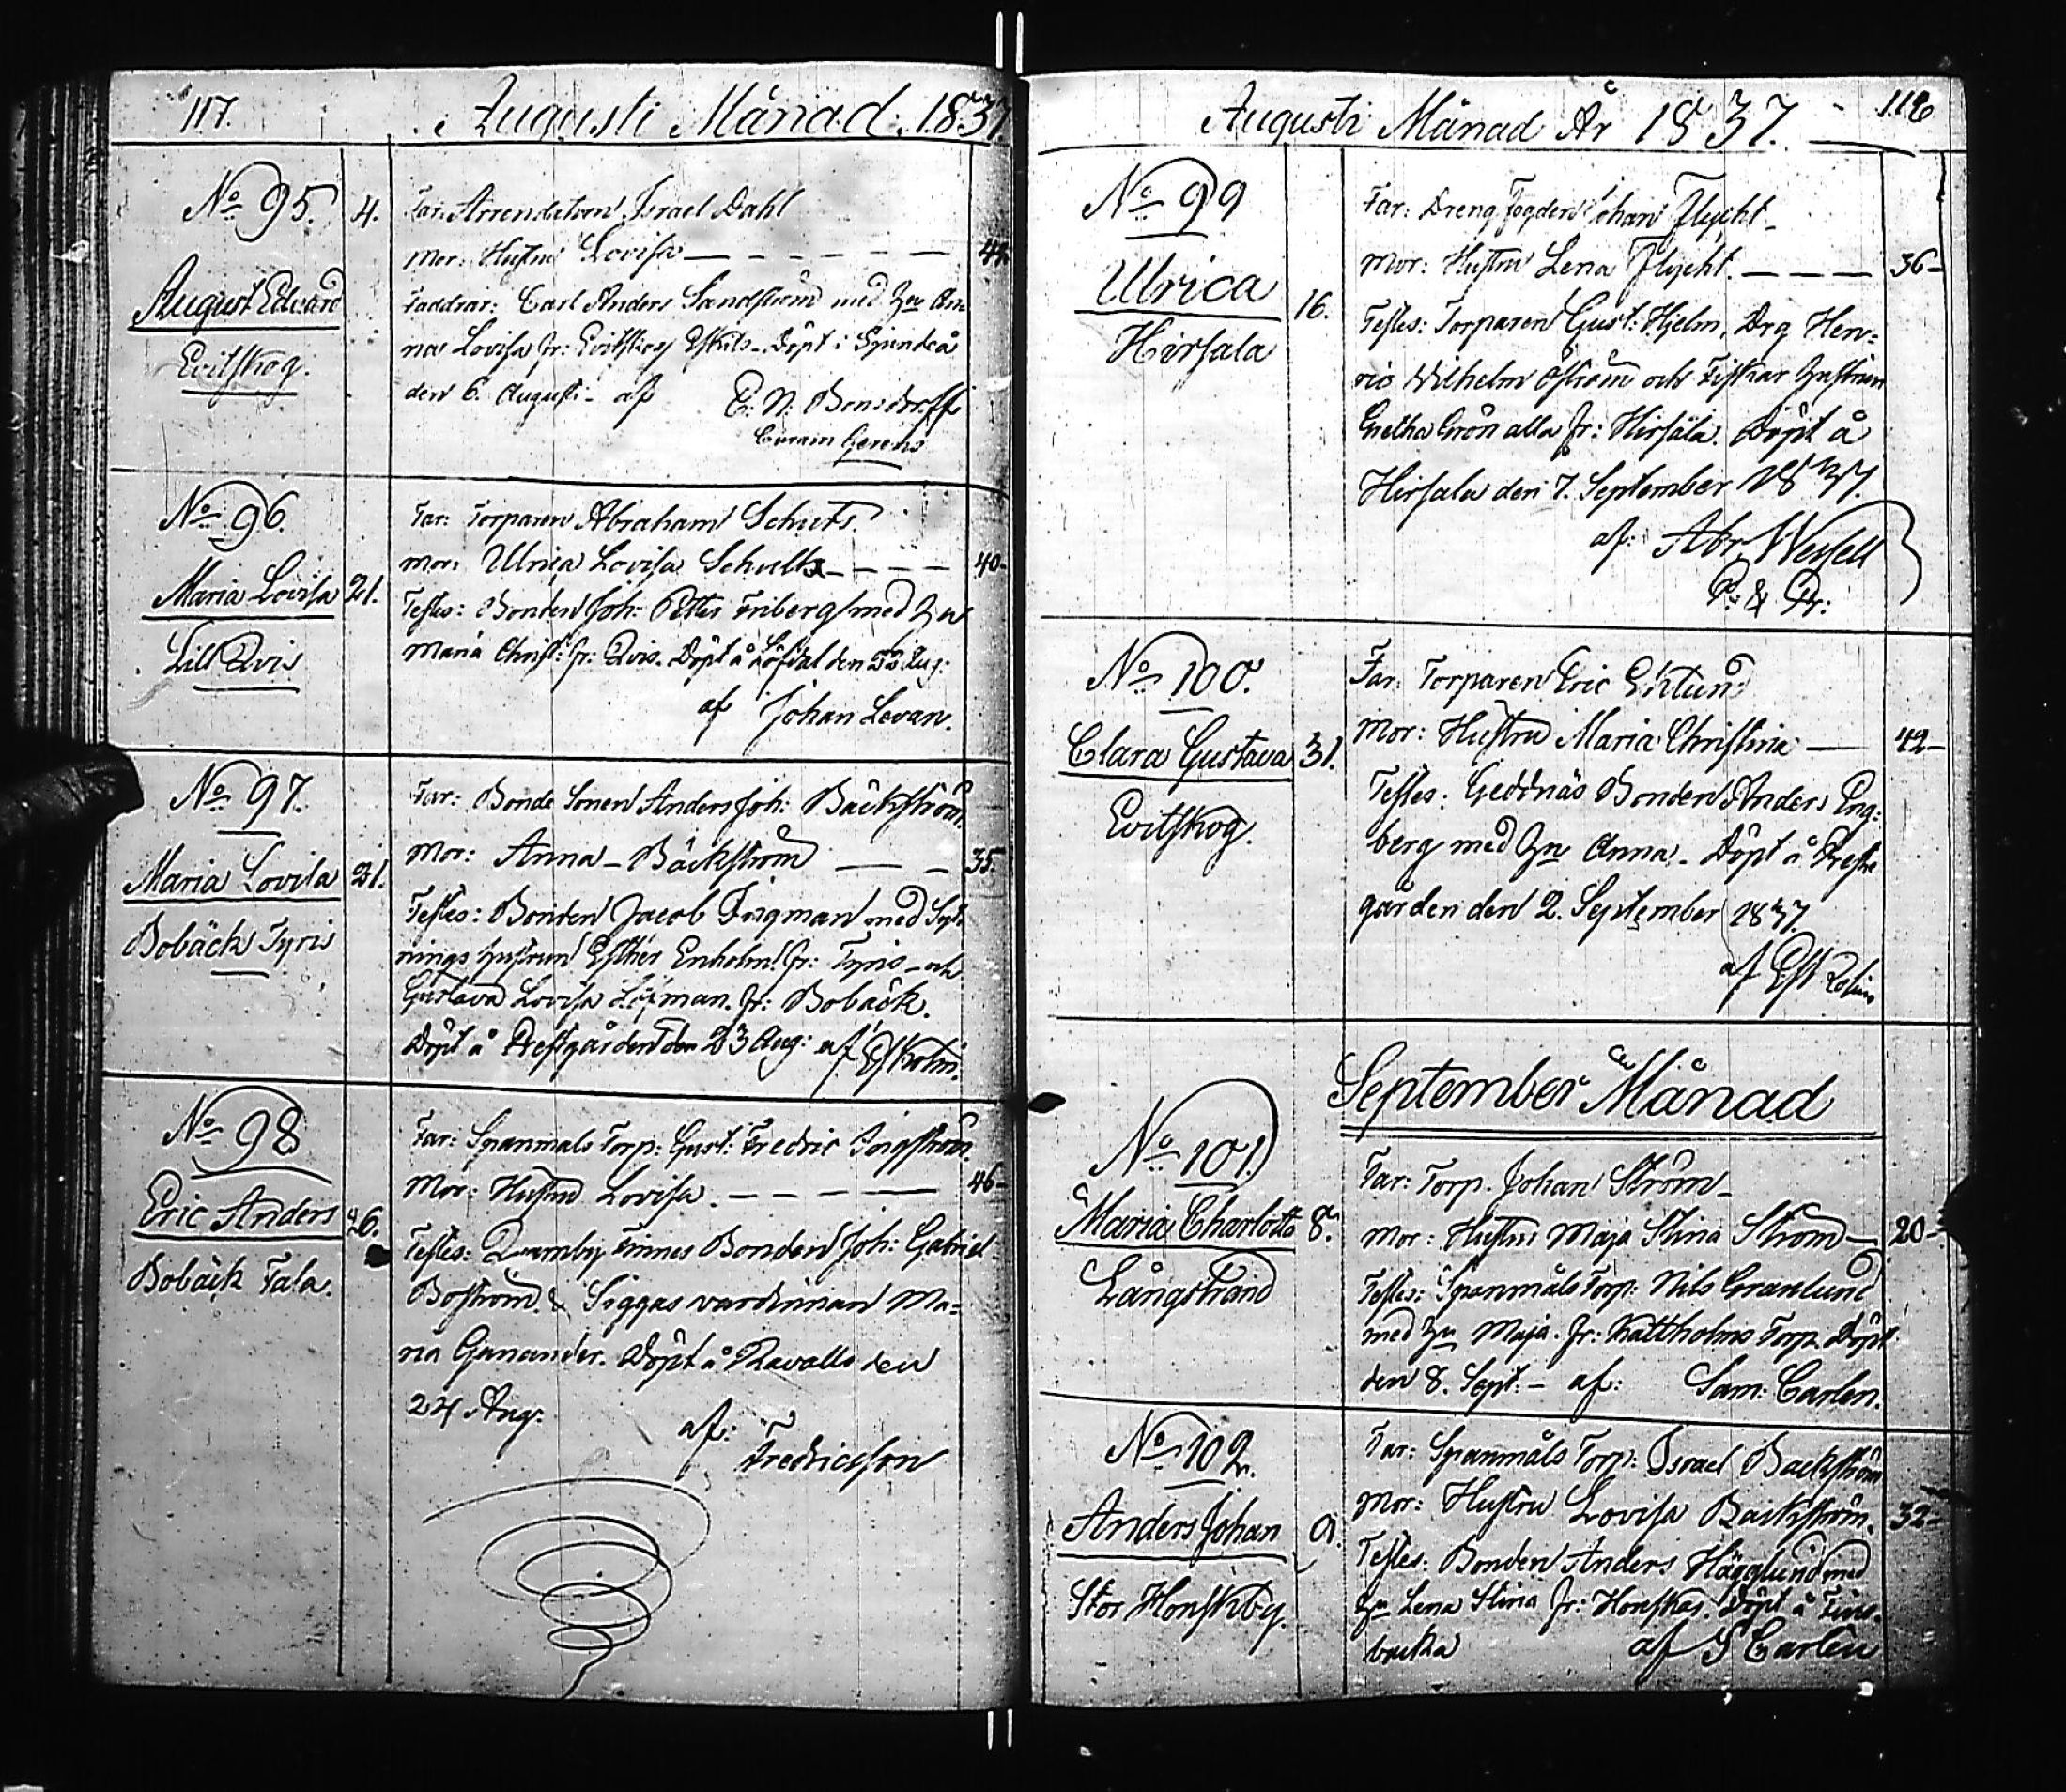 117.
Augusti Månad. 1837
No 95.
4.
August Edvard
Evitskog.
Far: Arrendatorn Israel Dahl
Mor: Hustru Lovisa
44
Faddrar: Carl Anders Sandström med Hn An=
na Lovisa fr: Evitskog Eskils. Döpt i Sjundeå
den 6. Augusti af E: N: Bonsdorff
Curam Gerens
No 96.
Maria Lovisa
21.
Lill Qvis
Far: Torparen Abraham Schults.
mor: Ulrica Lovisa Schultz
40
Testes: Bonden Joh: Petter Friberg med Hn
Maria Christ: fr: Qvis. Döpt å Löfdal den Aug:
af Johan Levan.
No 97.
Maria Lovisa
21.
Bobäck Tyris
Far: Bonde Sonen Anders Joh: Bäckström
Mor: Anna Bäckström
35.
Testes: Bonden Jacob med
nings hustrun Esther Enholm fr: Tyris och
Gustava Lovisa fr: Bobäck.
Döpt å Prestgården den 23 Aug: af
No 98
Eric Anders
26.
Bobäck Tala.
Far: Spanmals Torp: Gust: Fredric
Mor: Hustru Lovisa.
46
Testes: Finnes Bonden Joh: Gabriel
Boström & Siggas vardinnan Ma=
ria Ganander. Döpt å Ravalls den
24 Aug:
af:
Fredricsson
Augusti Månad År 1837.
118
No 99
Ulrica
16.
Hirsala
Far: Dreng Fogden Johan Flycht
Mor: Hustru Lena Flycht.
36
Testes: Torparen Gust: Hjelm, Drg Hen=
ric Wilhelm Öström och Fiskar hustrun
Gretha Grön alla fr: Hirsala. Döpt å
Hirsala den 7. September 1837.
af: Abr. Wessell
P: &
No 100.
Clara Gustava
31.
Evitskog.
Far: Torparen Eric Eklund
Mor: Hustru Maria Christina
42
Testes: Geddnäs Bonden Anders Eng=
berg med Hn Anna. Döpt å Prest
gården den 2. September 1837.
af
September Månad
No 101.
Maria Charlotta
8.
Långstrand
Far: Torp. Johan Ström
Mor: Hustru Maja Stina Ström
20
Testes: Spanmåls Torp: Nils Granlund
med Hn Maja. fr: Kattholms Torp Döpt
den 8. Sept: af: Sam: Carlen.
No 102.
Anders Johan
9.
Stor Honskby.
Far: Spanmåls Torp: Israel Backström
Mor: Hustru Lovisa Backström.
32
Testes: Bonden Anders Hägglund med
Hn Lena Stina fr: Honskby. Döpt å Fins=
backa af S Carlén